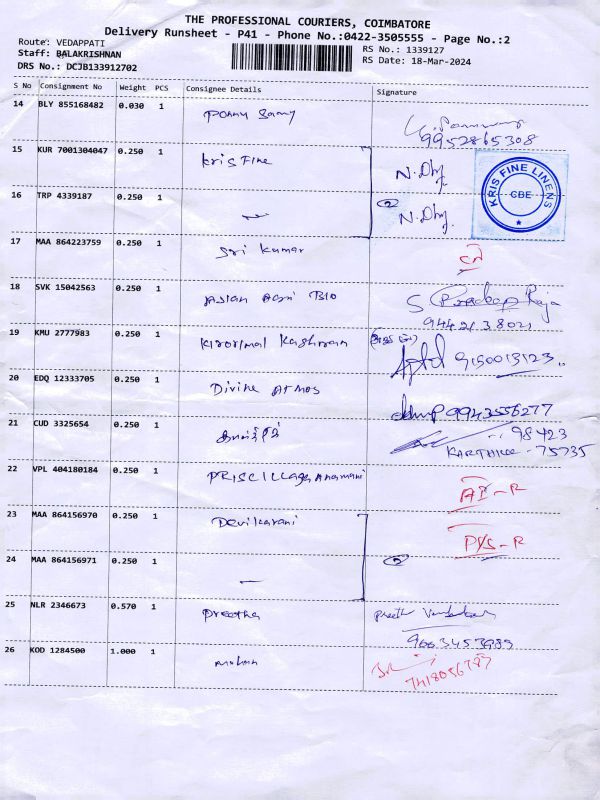 THE PROFESSIONAL COURIERS, COIMBATORE
Delivery Runsheet - P41 - Phone No.:0422-3505555 - Page No.:2
Route: VEDAPPATI
Staff: BALAKRISHNAN
DRS No.: DCJB133912702
RS No.: 1339127
RS Date: 18-Mar-2024
S No Consignment No Weight PCS Consignee Details Signature
14 BLY 855168482 0.030 1 Ponnu Samy
9952865308
15 KUR 7001304047 0.250 1 Kris Fine N. Dhj
KRIS FINE LINENS
CBE
16 TRP 4339187 0.250 1 2 N. Dhj
17 MAA 864223759 0.250 1 Sri Kumar
18 SVK 15042563 0.250 1 Asian Agri Bio S Pradeep Raja
9442138021
19 KMU 2777983 0.250 1 Kirorimal Kashiram 9150013123
20 EDQ 12333705 0.250 1 Divine Atmos 9943556277
21 CUD 3325654 0.250 1 98423
KARTHIKK - 75735
22 VPL 404180184 0.250 1 PRISCILLA Gnanamani AI - R
23 MAA 864156970 0.250 1 Devikarani P/S - R
24 MAA 864156971 0.250 1 2
25 NLR 2346673 0.570 1 Preetha Preeth
9663453989
26 KOD 1284500 1.000 1 Mohan
7418056787